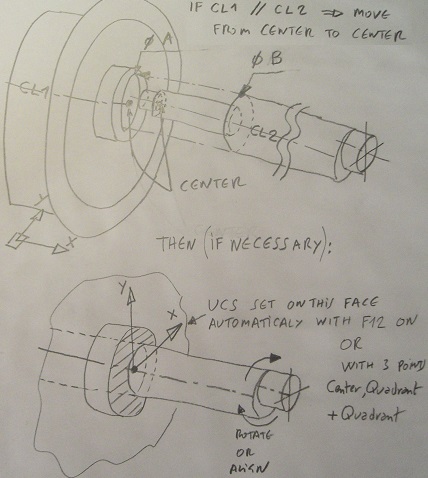 IF CL1 // CL2 ⇒ MOVE
FROM CENTER TO CENTER
φ A
φ B
CL1
CL2
CENTER
Y
X
THEN (IF NECESSARY):
Y
X
UCS SET ON THIS FACE
AUTOMATICALY WITH F12 ON
OR
WITH 3 POINT
Center, Quadrant
+ Quadrant
ROTATE
OR
ALIGN